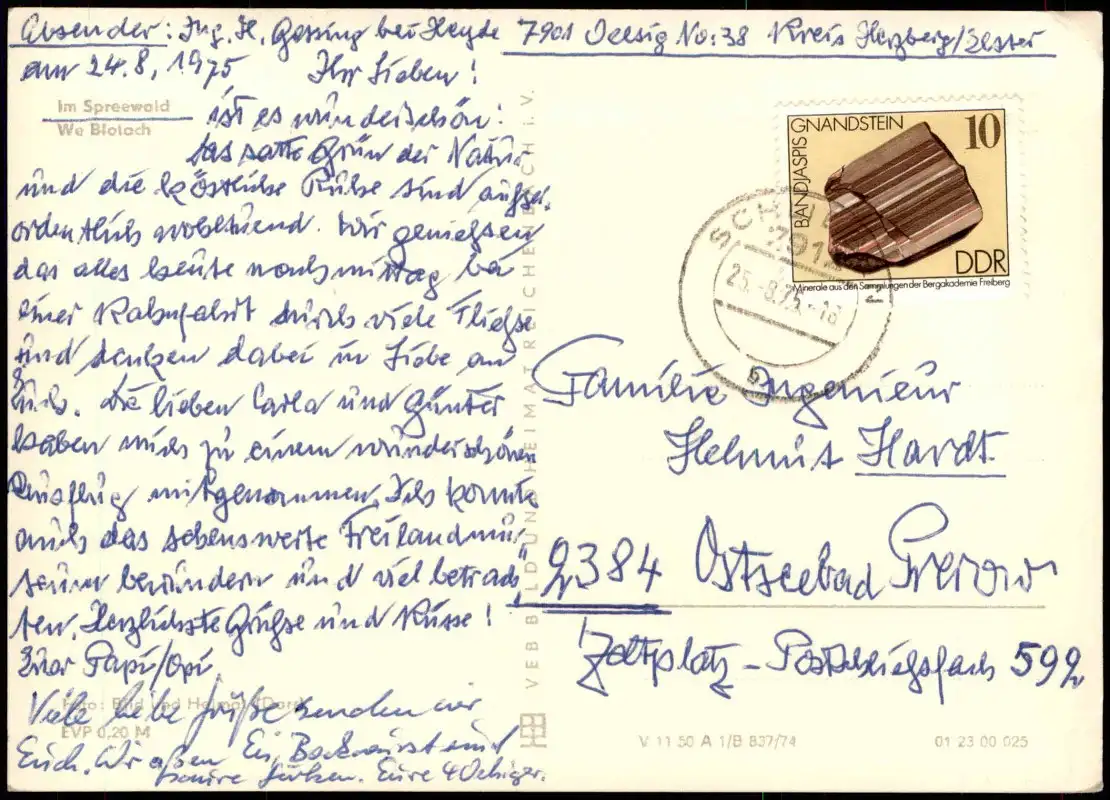 Absender: Ing. H. Gossing bei Heyde 7901 Oelsig No: 38 Kreis Herzberg/Elster
am 24.8.1975 Ihr Lieben!
Im Spreewald
We Blotach
ist es wunderschön!
Das satte Grün der Natur
und die köstliche Ruhe sind außer-
ordentlich wohltuend. Wir genießen
das alles heute nachmittag bei
einer Kahnfahrt durch viele Fließe
und denken dabei in Liebe an
Euch. Die lieben Carla und Günter
haben mich zu einem wunderschönen
Ausflug mitgenommen. Ich konnte
auch das sehenswerte Freilandmu-
seum bewundern und viel betrach-
ten. Herzlichste Grüße und Küsse!
Euer Papi/Opi
Viele liebe Grüße senden wir
Euch. Wir aßen Ei, Bockwurst und
saure Gurken. Eure 4 Oelsiger.
Foto: Bild und Heimat
EVP 0,20 M
VEB BILD UND HEIMAT REICHENBACH I. V.
BANDJASPIS
GNANDSTEIN
10
DDR
Minerale aus den Sammlungen der Bergakademie Freiberg
791
25.-8.75.-18
b
Familie Ingenieur
Helmut Hardt
2384 Ostseebad Prerow
Zeltplatz - Postschließfach 599
V 11 50 A 1/B 837/74
01 23 00 025